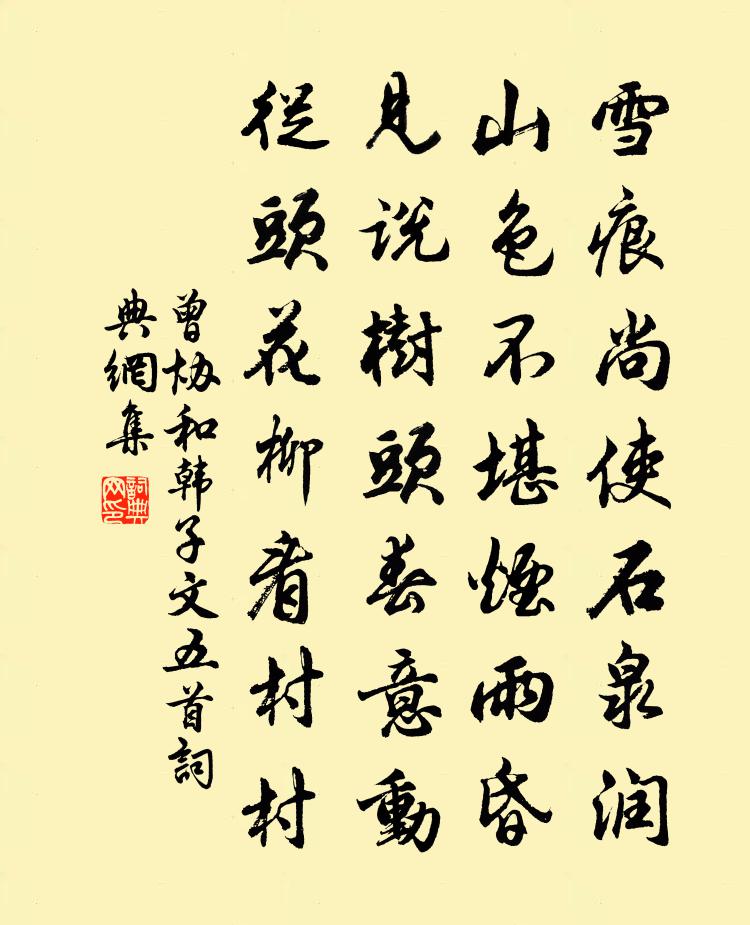 雪痕尚使石泉润
山色不堪煙雨昏
見説樹頭春意動
從頭花柳看村村
曾协和韩子文五首詞
典網集
詞典
网印